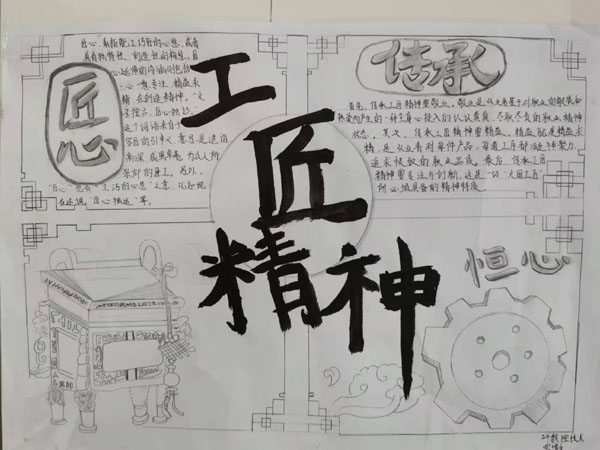 匠心
工
匠
精神
传承
恒心
匠心,是指能工巧匠的心思,或者
具有独特性、创造性的构思,且
心延伸的内涵以包括
心一意专注、精益求
精、在创造精神。
这个词语来自于
家的引申义,意思是造诣
高深,成果卓著,为众人所
崇仰的画工。另外,
"匠心"也有"工巧的心思"之意,
在运调,匠心独运"等。
首先,传承工匠精神要敬业。敬业是从业者基于对职业的敬畏和
热爱而产生的一种全身心投入的认认真真、尽职尽责的职业精神
状态。其次,传承工匠精神要精益。精益就是精益求
精,是从业者对每件产品、每道工序都凝神聚力、
追求极致的职业品质。最后,传承工匠
精神要专注和创新,这是一切"大国工匠"
所必须具备的精神特质。
24数控技术